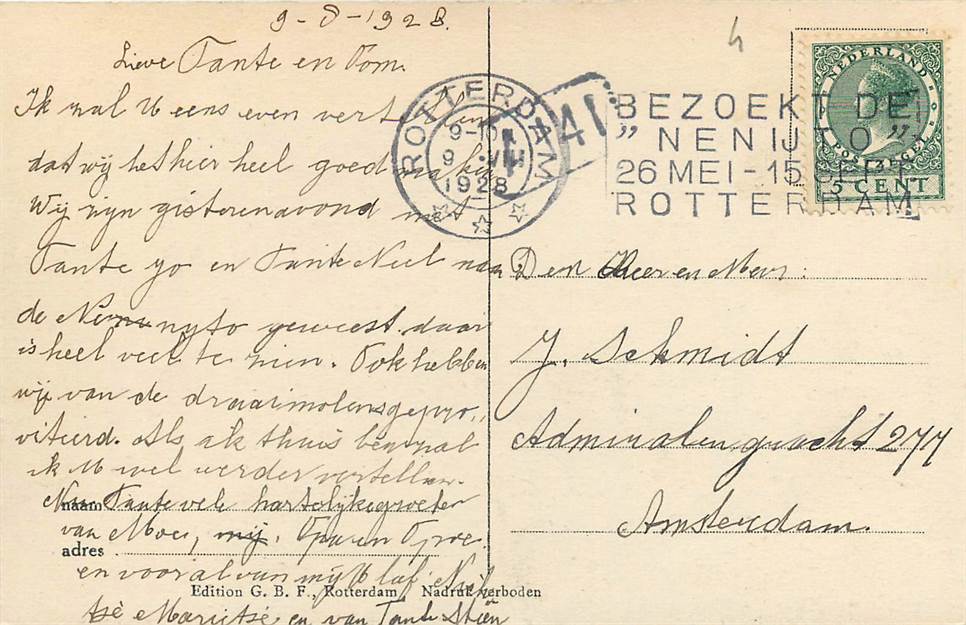 9-8-1928.
Lieve Tante en Oom.
Ik zal U eens even vert
dat wij het hier heel goed
Wij zijn gisterenavond met
Tante Jo en Tante Neel naar
de nyto geweest, daar
is heel veel te zien. Ook hebben
wij van de draaimolens gepro„
viteerd. Als ik thuis ben zal
ik U wel verder vertellen.
naam Tante vele hartelijke groeten
van Moes, mij, Opa en Opoe
adres
en vooral van mij U lief
Marietje en van Tante Stien
ROTTERDAM
9-10
9 VIII
1928
41
BEZOEKT DE
„NENIJTO"
26 MEI - 15 SEPT
ROTTERDAM
NEDERLAND
POSTZEGEL
5 CENT
Den Heer en Mevr:
J. Schmidt
Admiralengracht 277
Amsterdam.
Edition G. B. F., Rotterdam Nadruk verboden